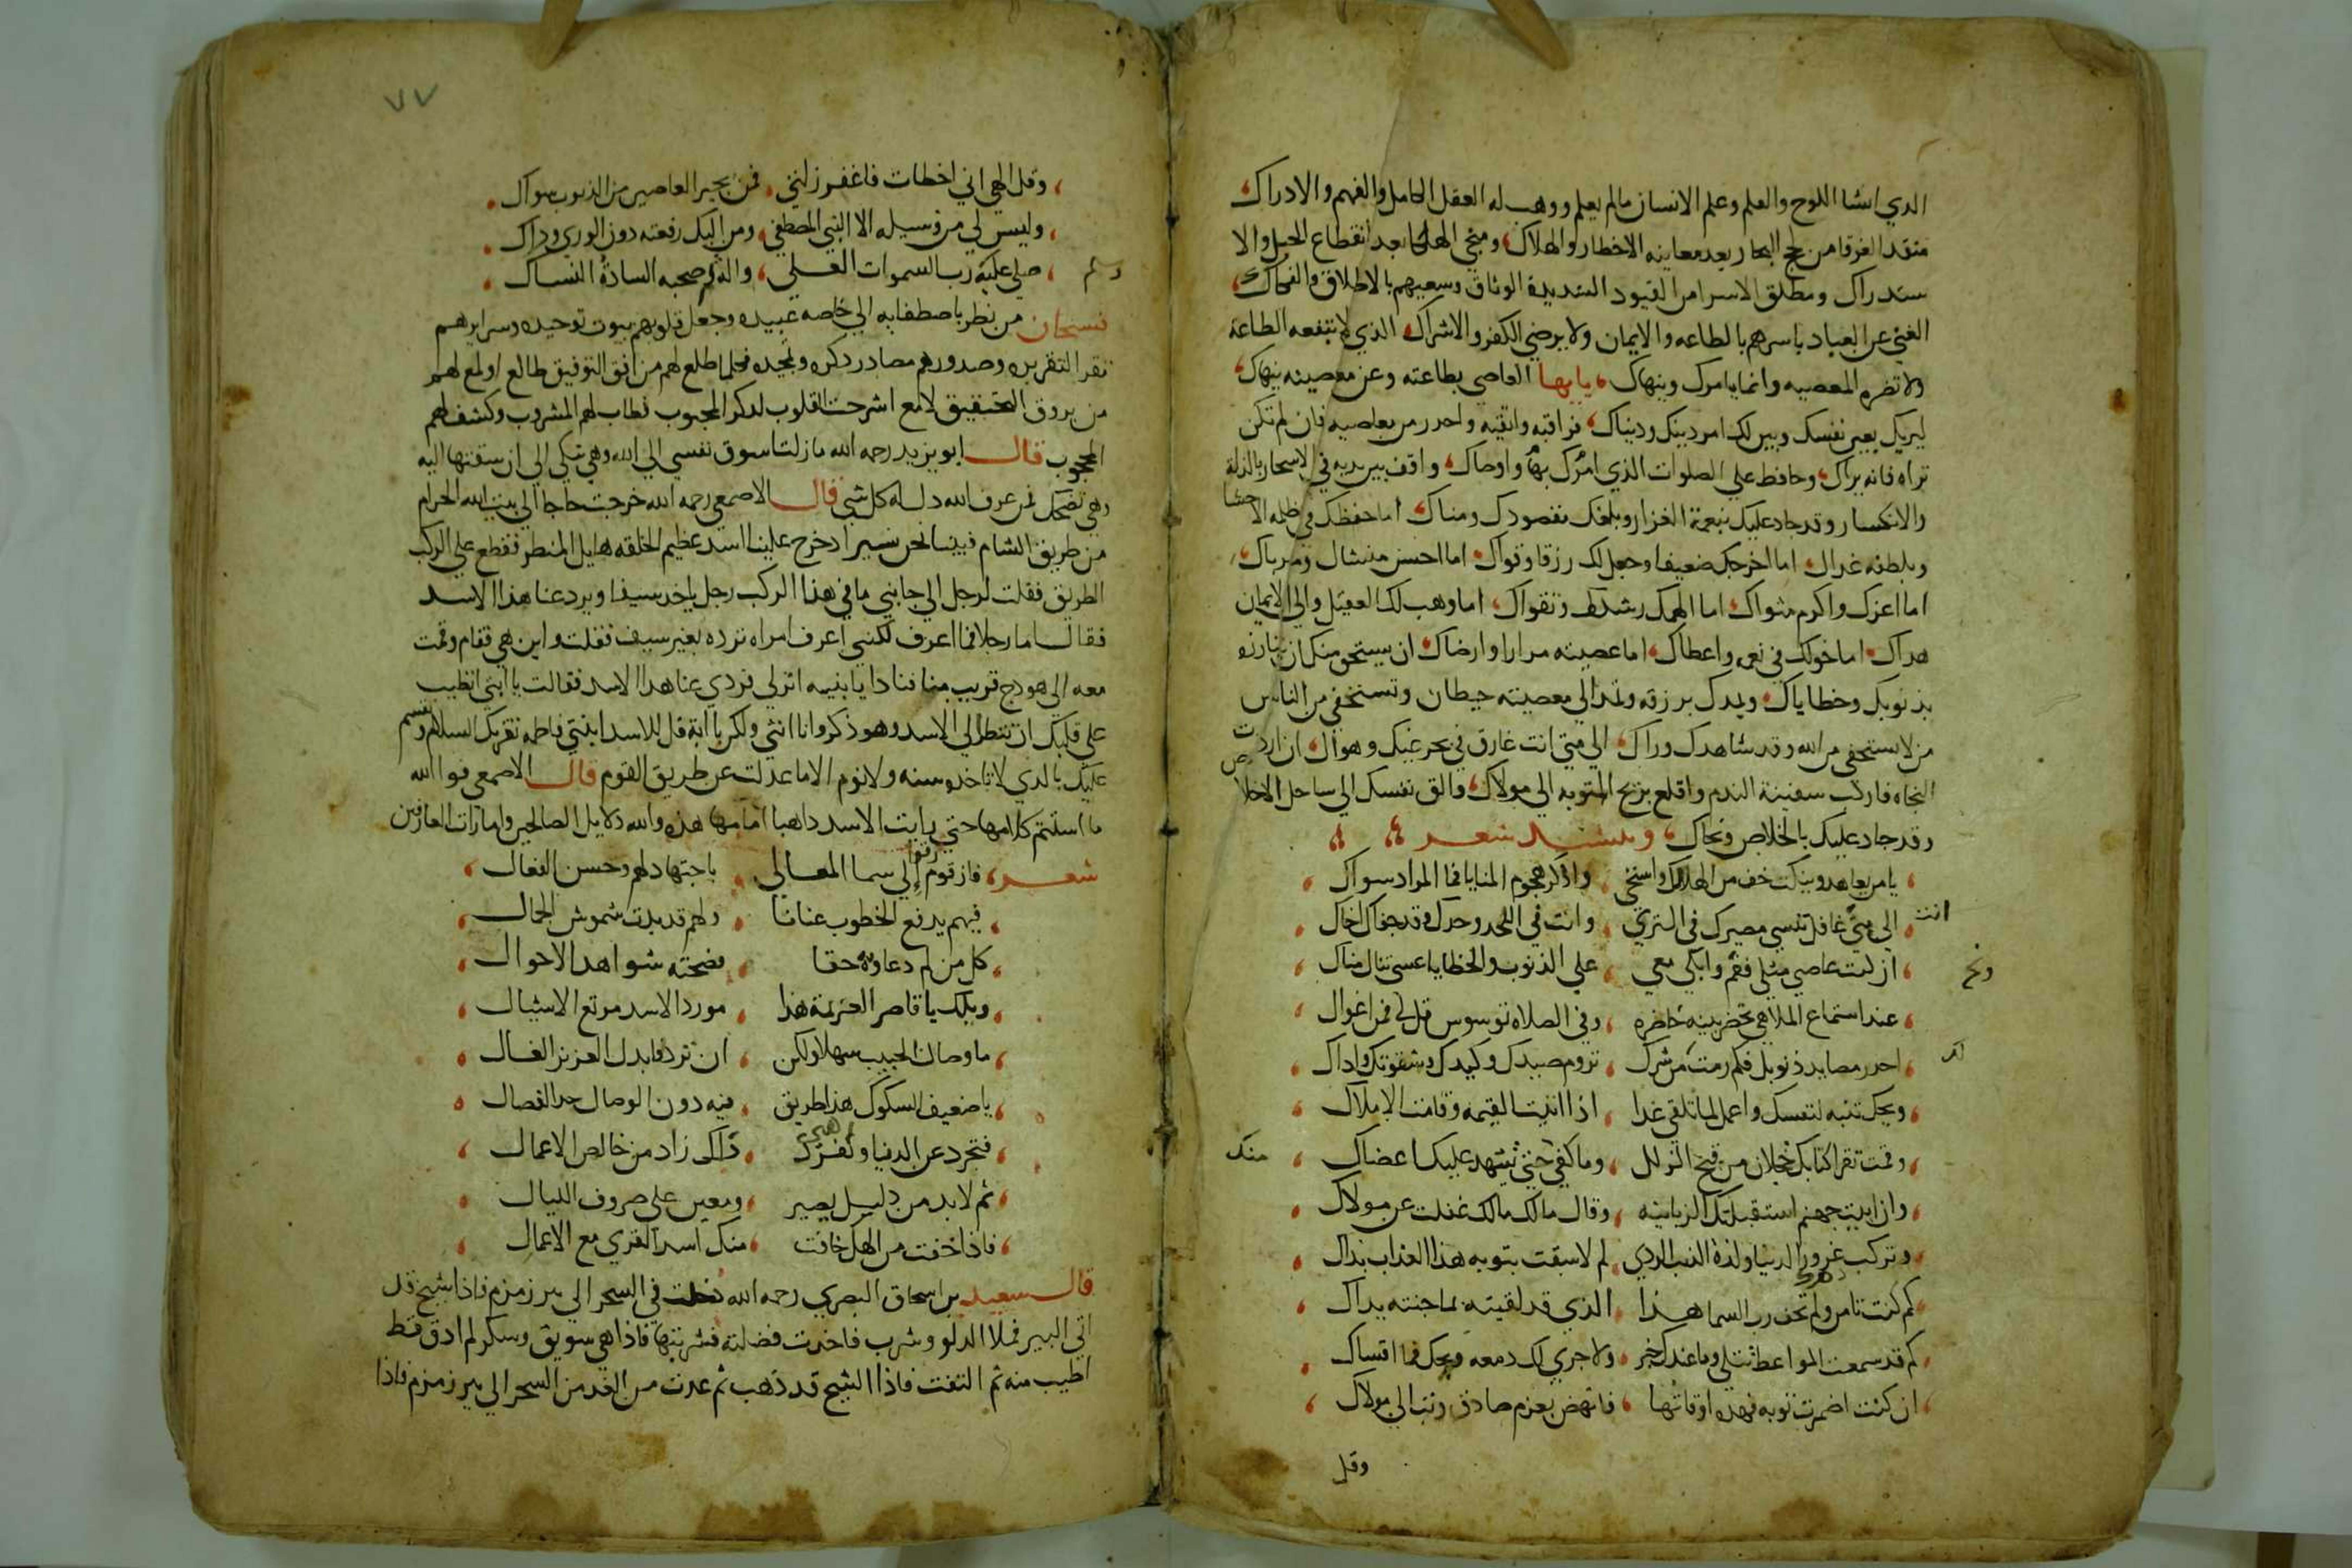 الدي انشا اللوح والقلم وعلم الانسان مالم يعلم ووهب له العقل الكامل والفهم والادراك
منقد الغرقا من لجج البحار بعد معاينه الاخطار والهلاك ومنجي الهلكا بعد انقطاع الحيل والا
ستدراك ومطلق الاسرا من القيود الشديدة الوثاق وسعيهم بالاطلاق والفكاك
الغني عن العباد باسرهم بالطاعه والايمان ولا يرضي الكفر والاشراك الذي لا تنفعه الطاعة
ولا تضره المعصيه وانما يامرك وينهاك يايها العاصي بطاعته وعن معصيته ينهاك
ليريك بعين نفسك ويبين لك امر دينك ودنياك فراقبه واتقيه واحدر من معاصيه فان لم تكن
تراه فانه يراك وحافظ علي الصلوات الذي امرك بها واوصاك واقف بين يديه في الاسحار بالذلة
والانكسار وقد جاد عليك بنعمة الغزار وبلغك مقصودك ومناك اما حفظك في ظلمه الاحشا
وبلطفه غداك اما اخرجك ضعيفا وجعل لك رزقا وقواك اما احسن منشاك ومرباك
اما اعزك واكرم مثواك اما الهمك رشدك وتقواك اما وهب لك العقل والي الايمان
هداك اما خولك في نعمه واعطاك اما عصيته مرارا وارضاك ان يستحق منك ان تبارزه
بذنوبك وخطاياك ويمدك برزقه وتمدا الي معصيته خطاك وتستخفي من الناس
من لا يستخفي من الله وقد شاهدك وراك الي متي انت غارق في بحر غيك وهواك ان اردت
النجاه فاركب سفينة الندم واقلع بريح التوبه الي مولاك والق نفسك الي ساحل الاخلاص
وقد جاد عليك بالخلاص ونجاك وينشد شعر
يا من يعاهد وينكث خف من الهلاك واستحي واذكر هجوم المنايا فما المراد سواك
الي متي انت غافل تنسي مصيرك في الثري وانت في اللحد وحدك وقد جفاك اخاك
ان كنت عاصي مثلي فقم وابكي معي ونح علي الذنوب والخطايا عسي تنال مناك
عند استماع الملاهي تحضر بنيه حاضره وفي الصلاه توسوس قل لي فمن اغواك
احدر مصايد ذنوبك فكم رمت من شرك لك تروم صيدك وكيدك وشقوتك واداك
ويحك تنبه لنفسك واعمل لما تلقي غدا اذا اتيت القيمه وقامت الاملاك
وقمت تقرا كتابك خجلان من قبح الزلل وما كفي حتي تشهد عليك اعضاك منك
وان اتيت جهنم استقبلتك الزبانيه وقال مالك مالك غفلت عن مولاك
وتركب غرور الدنيا ولذة الذنب الردي لم لا سبقت بتوبه هذا العذاب بداك
كم كنت تامن ولم تخف رب السما هذا الذي قد لقيته بما جنته يداك
كم قد سمعت المواعظ تتلي وما عندك خبر ولا جري لك دمعه ويحك فما اقساك
ان كنت اضمرت توبه فهده اوقاتها فانهض بعزم صادق وتب الي مولاك
وقل
٧٧
وقل الهي اني اخطات فاغفر زلتي فمن يجير العاصين من الذنوب سواك
وليس لي من وسيله الا النبي المصطفي ومن اليك رفعته دون الوري وداك
صلي عليه رب السموات العلي واله وصحبه السادة النساك
وسلم
فسبحان من نظر باصطفايه الي خاصه عبيده وجعل قلوبهم بيوت توحيده وسرايرهم
مقر التقريره وصدورهم مصادر دكره وتمجيده فكلما طلع لهم من افق التوفيق طالع او لمع لهم
من بروق التحقيق لامع اشرحت القلوب لدكر المحبوب فطاب لهم المشروب وكشف لهم
المحجوب قال ابو يزيد رحمه الله مازلت اسوق نفسي الي الله وهي تبكي الي ان سقتها اليه
وهي تضحك فمن عرف الله دل له كل شي قال الاصمعي رحمه الله خرجت حاجا الي بيت الله الحرام
من طريق الشام فبينما نحن نسير اد خرج علينا اسد عظيم الخلقه هايل المنظر فقطع علي الركب
الطريق فقلت لرجل الي جانبي ما في هذا الركب رجل ياخد سيفا ويردعنا هذا الاسد
فقال اما رجلا فما اعرف لكنني اعرف امراه ترده بغير سيف فقلت واين هي فقام وقمت
معه الي هودج قريب منا فنادا يا بنيه انزلي فردي عنا هدا الاسد فقالت يا ابتي اتطيب
علي قلبك ان تنظر الي الاسد وهو ذكر وانا انثي ولكن يا ابة قل للاسد ابنتي فاطمه تقريك السلام وتقسم
عليك بالدي لا تاخده سنه ولا نوم الا ما عدلت عن طريق القوم قال الاصمعي فوالله
ما استتم كلامها حتي رايت الاسد داهبا امامها هذه والله دلايل الصالحين وامارات العارفين
شعر فاز قوم رقوا الي سما المعالي باجتهاد لهم وحسن الفعال
فبهم يدفع الخطوب عنانا ولهم قد بدت شموش الجمال
كل من لم دعاويه حقا فضحته شواهد الاحوال
ويلك يا قاصر العزيمة هذا مورد الاسد مرتع الاشبال
ما وصال الحبيب سهلا ولكن ان ترد فابدل العزيز الغال
يا ضعيف السكوك هذا طريق فيه دون الوصال حد الفصال
فتجرد عن الدنيا وكفرك ذاكى زاد من خالص الاعمال
ثم لابد من دليل بصير ومعين علي صروف الليال
فاذا خفت من الهلك خافت منك اسد القري مع الاعمال
قال سعيد بن اسحاق البصري رحمه الله دخلت في السحر الي بير زمزم فاذا شيخ قد
اتي البير فملا الدلو وشرب فاخدت فضلته فشربتها فاذا هي سويق وسكر لم ادق قط
اطيب منه ثم التفت فاذا الشيخ قد ذهب ثم عدت من الغد من السحر الي بير زمزم فاذا